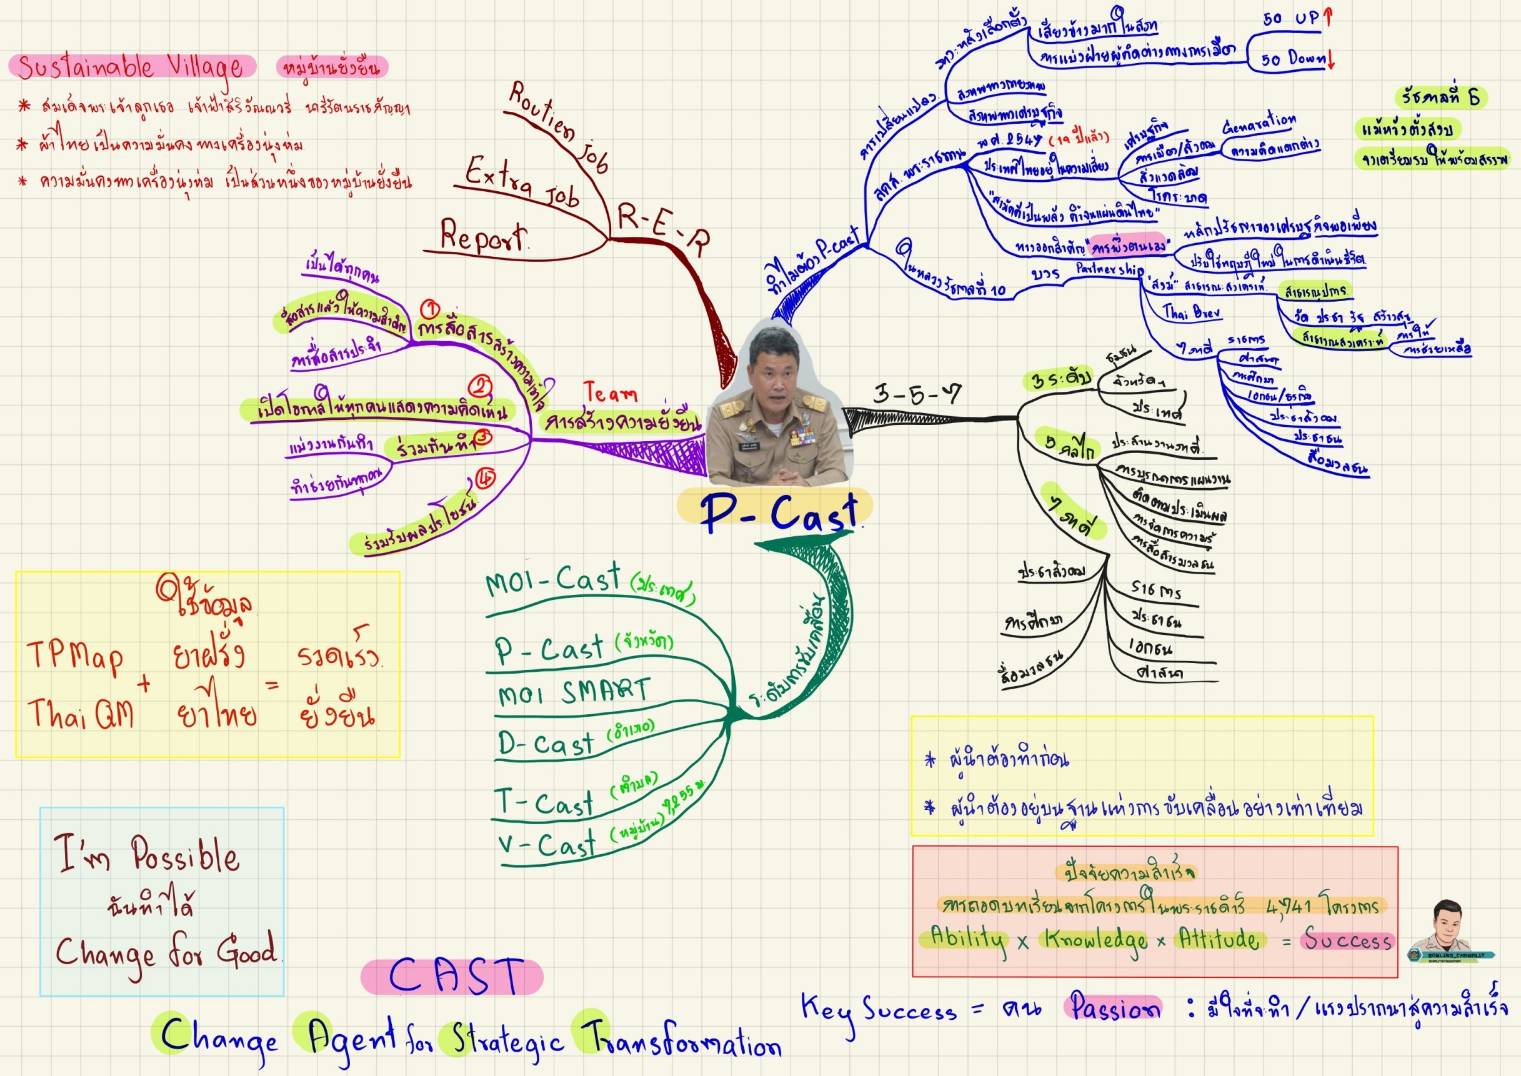 Sustainable Village หมู่บ้านยั่งยืน
* สมเด็จพระเจ้าลูกเธอ เจ้าฟ้าสิริวัณณวรี นารีรัตนราชกัญญา
* ผ้าไทยเป็นความมั่นคงทางเครื่องนุ่งห่ม
* ความมั่นคงทางเครื่องนุ่งห่ม เป็นส่วนหนึ่งของหมู่บ้านยั่งยืน
R-E-R
Routien Job
Extra Job
Report.
ทำไมต้อง P-cast
การเปลี่ยนแปลง
ภาวะหลังเลือกตั้ง
เสียงข้างมากในสภา
การแบ่งฝ่ายผู้คิดต่างทางการเมือง
50 UP ↑
50 Down ↓
สภาพทางกายภาพ
สภาพทางเศรษฐกิจ
ส.ค.ส. พระราชทาน
พ.ศ. 2547 (19 ปีแล้ว)
ประเทศไทยอยู่ในความเสี่ยง
เศรษฐกิจ
การเมือง/สังคม
Genaration
ความคิดแตกต่าง
สิ่งแวดล้อม
โรคระบาด
"สามัคคีเป็นพลัง ค้ำจุนแผ่นดินไทย"
ทางออกสำคัญ "การพึ่งตนเอง"
หลักปรัชญาของเศรษฐกิจพอเพียง
ปรับใช้ทฤษฎีใหม่ในการดำเนินชีวิต
ในหลวงรัชกาลที่ 10
บวร
Partnership
"สงฆ์" สาธารณะสงเคราะห์
สาธารณูปการ
วัด ประชา รัฐ สร้างสุข
สาธารณสงเคราะห์
การให้
การช่วยเหลือ
Thai Brev
7 ภาคี
ราชการ
ศาสนา
การศึกษา
เอกชน/ธุรกิจ
ประชาสังคม
ประชาชน
สื่อมวลชน
รัชกาลที่ 6
แม้หวังตั้งสงบ
จงเตรียมรบให้พร้อมสรรพ
Team
การสร้างความยั่งยืน
① การสื่อสารสร้างความเข้าใจ
เป็นได้ทุกคน
สื่อสารแล้วให้ความสำคัญ
การสื่อสารประจำ
② เปิดโอกาสให้ทุกคนแสดงความคิดเห็น
ร่วมกันทำ ③
แบ่งงานกันทำ
ทำช่วยกันทุกคน
④ ร่วมรับผลประโยชน์
P-Cast
3-5-7
3 ระดับ
ชุมชน
จังหวัด
ประเทศ
5 กลไก
ประสานงานภาคี
การบูรณาการแผนงาน
ติดตามประเมินผล
การจัดการความรู้
การสื่อสารมวลชน
7 ภาคี
ประชาสังคม
การศึกษา
สื่อมวลชน
ราชการ
ประชาชน
เอกชน
ศาสนา
ระดับการขับเคลื่อน
MOI-Cast (ประเทศ)
P-Cast (จังหวัด)
MOI SMART
D-Cast (อำเภอ)
T-Cast (ตำบล)
V-Cast (หมู่บ้าน)
ใช้ข้อมูล
TPMap + ยาฝรั่ง = รวดเร็ว
ThaiQM ยาไทย ยั่งยืน
I'm Possible
ฉันทำได้
Change for Good.
* ผู้นำต้องทำก่อน
* ผู้นำต้องอยู่บนฐานแห่งการขับเคลื่อนอย่างเท่าเทียม
ปัจจัยความสำเร็จ
การถอดบทเรียนจากโครงการในพระราชดำริ 4,741 โครงการ
Ability × Knowledge × Attitude = Success
CAST
Change Agent for Strategic Transformation
Key Success = คน Passion : มีใจที่จะทำ / แรงปรารถนาสู่ความสำเร็จ